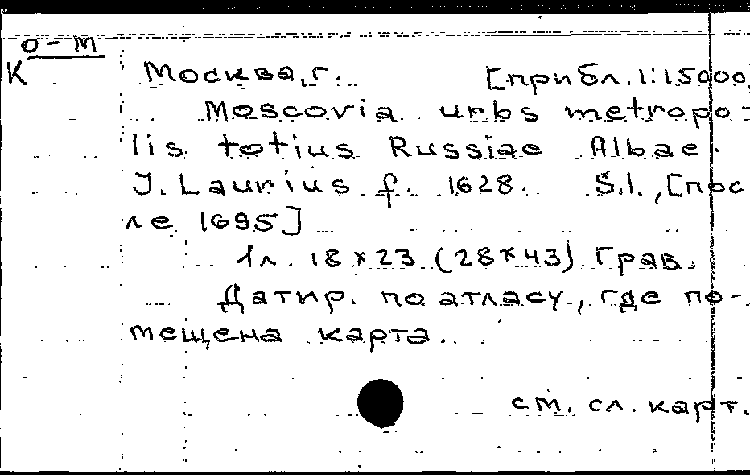 О-М
К
Москва, г. [прибл. 1:15000]
Moscovia urbs metropo-
lis totius Russiae Albae.
J. Laurius f. 1628. S.l., [пос
ле 1695]
1л. 18×23 (28×43) Грав.
Датир. по атласу, где по-
мещена карта.
см. сл. карт.